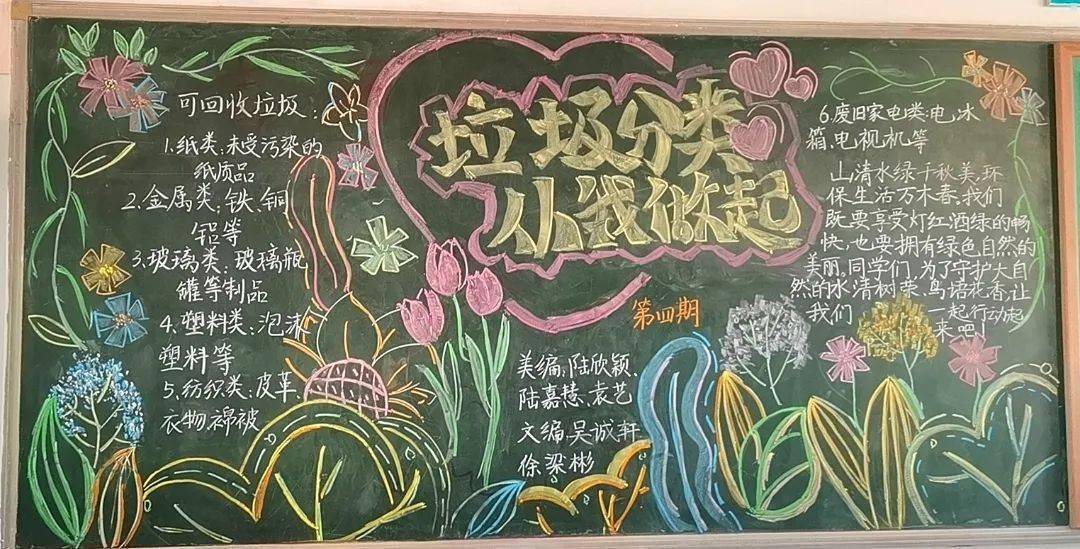 垃圾分类
从我做起
可回收垃圾:
1.纸类:未受污染的
纸质品
2.金属类:铁、铜
铝等
3.玻璃类:玻璃瓶
罐等制品
4.塑料类:泡沫
塑料等
5.纺织类:皮革
衣物、棉被
第四期
美编:陆欣颖、
陆嘉慧、袁艺
文编:吴诚轩
徐梁彬
6.废旧家电类:电冰
箱、电视机等
山清水绿千秋美,环
保生活万木春。我们
既要享受灯红酒绿的畅
快,也要拥有绿色自然的
美丽。同学们,为了守护大自
然的水清树荣、鸟语花香,让
我们一起行动起
来吧!